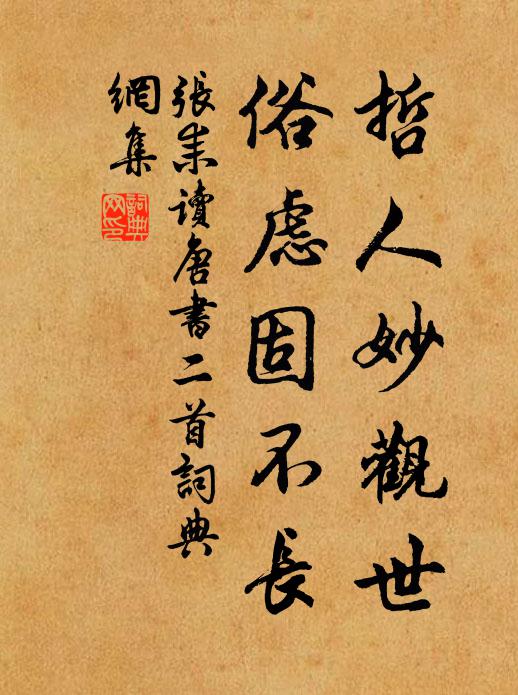 哲人妙觀世
俗慮固不長
張耒讀唐書二首詞典
網集
詞典
网印